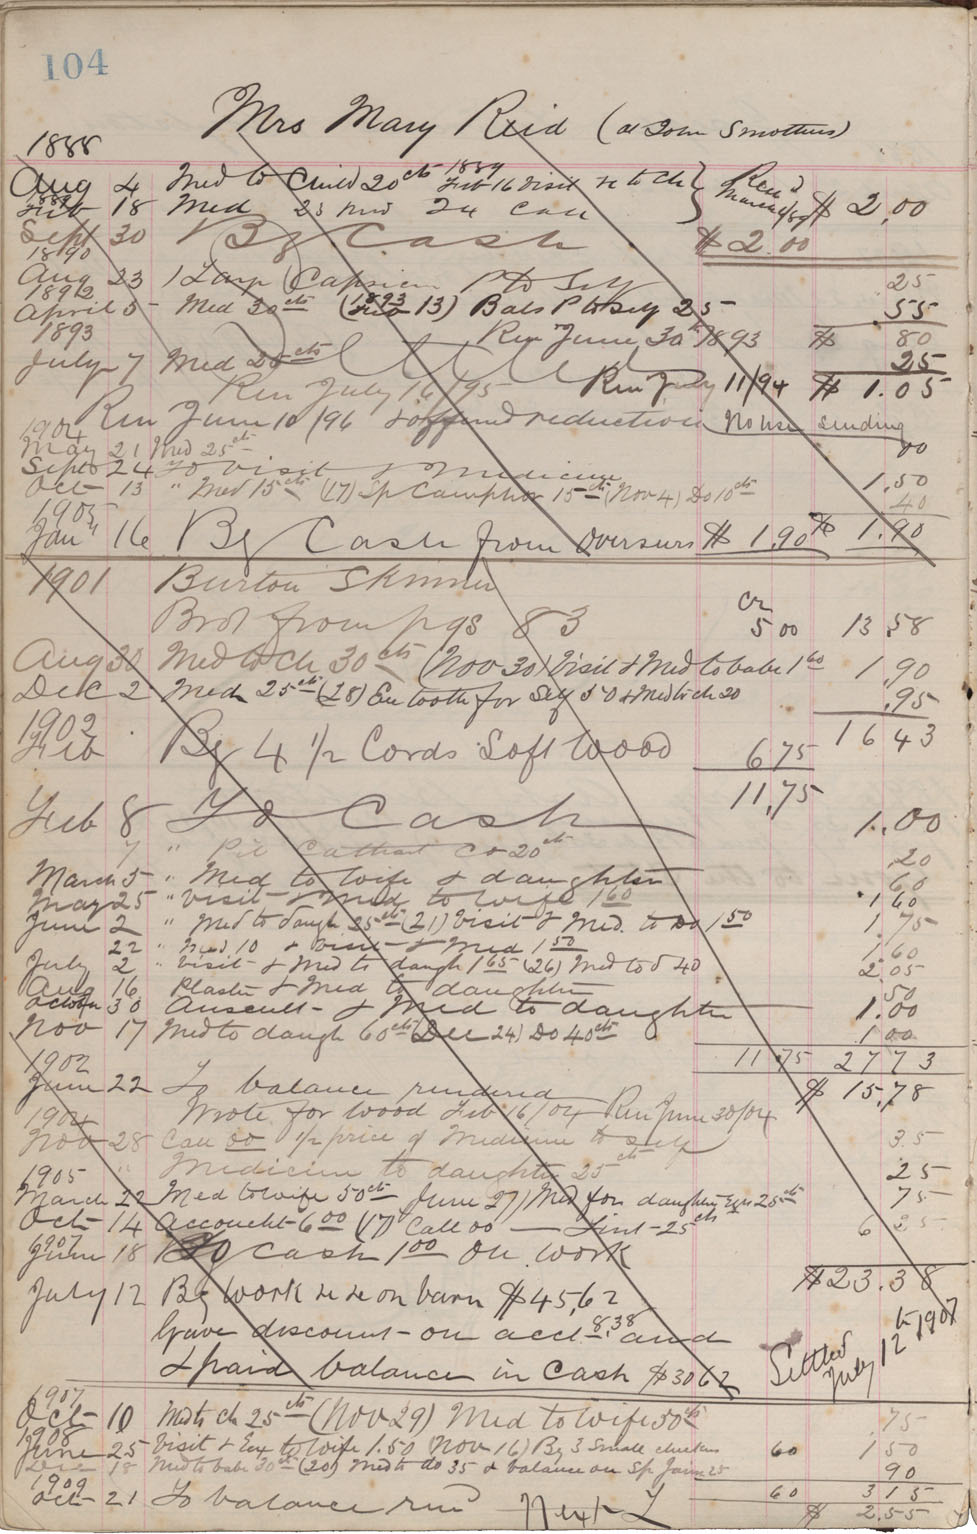 104
Mrs Mary Reid (at John Smothers)
1888
Aug 4 Med to Child 20cts 1889 Feb 16 Visit to Ch
1889 Feb 18 Med 25 Call $ 2.00
Sept 30 By Cash $ 2.00
1890
Aug 23 1 Large Capsicum Pl to Self 25
1892
April 5 Med 30cts (1893 Feb 13) Bals P to Self 25 55
1893 Ren June 30th 1893 $ 80
July 7 Med 25cts 25
Ren July 16/95 Ren July 11/94 $ 1.05
Ren June 10/96 & offered reduction No use sending
1904
May 21 Med 25cts 00
Sept 24 To Visit & Medicine 1.50
Oct 13 " Med 15cts (17) Sp Camphor 15cts (Nov 4) Do 10cts 40
1905
Jan 16 By Cash from Overseers $ 1.90 $ 1.90
1901 Burton Skinner
Brot from pgs 83 Cr 5 00 13 58
Aug 30 Med to Ch 30cts (Nov 30) Visit & Med to babe 1 60 1,90
Dec 2 Med 25cts (28) Ex tooth for Self 50 & Med to ch 20 .95
1902 16 43
Feb By 4 1/2 Cords Soft Wood 6 75
11,75
Feb 8 To Cash 1.00
7 " Pil Cathart Co 20cts .20
March 5 " Med to wife & daughter 60
May 25 " Visit & Med to wife 1 60 1 60
June 2 " Med to daugh 25cts (21) Visit & Med. to Do 1 50 1.75
22 " Med 10 & Visit & Med 1 50 1.60
July 2 " Visit & Med to daugh 1 65 (26) Med to d 40 2.05
Aug 16 Plaster & Med to daughter .50
October 30 Auscult & Med to daughter 1.00
Nov 17 Med to daugh 60cts (Dec 24) Do 40cts 1 00
1902 11 75 27 73
June 22 To balance rendered $ 15,78
Wrote for wood Feb 16/04 Ren June 30/04
1904
Nov 28 Call 00 1/2 price of Medicine to Self 35
" Medicine to daughter 25cts 25
1905
March 22 Med to wife 50cts June 27) Med for daughter Eyes 25cts 75
Oct 14 Accoucht 6 00 (17) Call 00 — Lint 25cts 6 25
1907
June 18 To Cash 1 00 on work
$23.38
July 12 By work on barn $45,62
Gave discount on acct 8.38 and
& paid balance in Cash $30 62
Settled July 12th 1907
1907
Oct 10 Med to ch 25cts (Nov 29) Med to wife 50cts .75
1908
June 25 Visit & Ex to wife 1.50 (Nov 16) By 3 Small chickens 60 1 50
Dec 18 Med to babe 30cts (20) Med to do 35 & balance on Sp 25 90
1909 60 3 15
Oct 21 To balance ren'd Next L $ 2.55